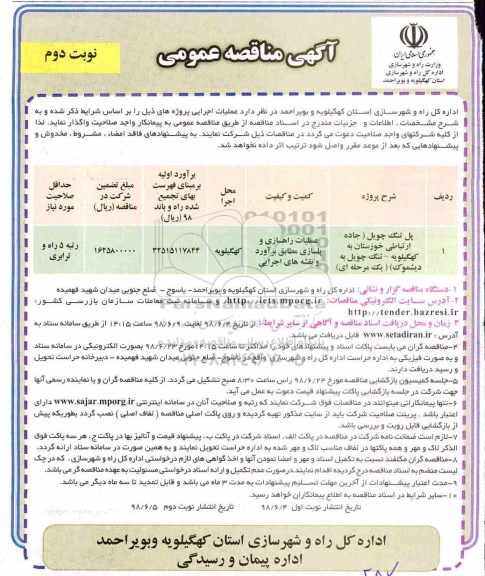 جمهوری اسلامی ایران
وزارت راه و شهرسازی
اداره کل راه و شهرسازی
استان کهگیلویه و بویراحمد
آگهی مناقصه عمومی
نوبت دوم
اداره کل راه و شهرسازی استان کهگیلویه و بویراحمد در نظر دارد عملیات اجرایی پروژه های ذیل را بر اساس شرایط ذکر شده و به
شرح مشخصات، اطلاعات و جزییات مندرج در اسناد مناقصه از طریق مناقصه عمومی به پیمانکار واجد صلاحیت واگذار نماید. لذا
از کلیه شرکتهای واجد صلاحیت دعوت می گردد در مناقصات ذیل شرکت نمایند. به پیشنهادهای فاقد امضاء، مشروط، مخدوش و
پیشنهادهایی که بعد از موعد مقرر واصل شود ترتیب اثر داده نخواهد شد.
ردیف
شرح پروژه
کمیت و کیفیت
محل اجرا
برآورد اولیه برمبنای فهرست بهای تجمیع شده راه و باند ۹۸ (ریال)
مبلغ تضمین شرکت در مناقصه (ریال)
حداقل صلاحیت مورد نیاز
۱
پل تنگ چویل (جاده ارتباطی خوزستان به کهگیلویه - تنگ چویل به دیشموک) (یک مرحله ای)
عملیات راهسازی و پلسازی مطابق برآورد و نقشه های اجرایی
کهگیلویه
۳۲۵۱۵۱۱۷۸۴۴
۱۶۲۵۸۰۰۰۰۰
رتبه ۵ راه و ترابری
۱-دستگاه مناقصه گزار و نشانی: اداره کل راه و شهرسازی استان کهگیلویه و بویراحمد- یاسوج - ضلع جنوبی میدان شهید فهمیده
۲-آدرس سایت الکترونیکی مناقصات: http://iets.mporg.ir، و سامانه ثبت معاملات سازمان بازرسی کشور:
http://tender.bazresi.ir
۳- زمان و محل دریافت اسناد مناقصه و آگاهی از سایر شرایط: از تاریخ ۹۸/۶/۴ لغایت ۹۸/۶/۹ ساعت ۱۴:۱۵ از طریق سامانه ستاد به
آدرس: www.setadiran.ir قابل دریافت می باشد.
۴-مناقصه گران می بایست پاکات اسناد و پیشنهادهای خود را حداکثر تا ساعت ۱۴:۱۵ مورخ ۹۸/۶/۲۳ بصورت الکترونیکی در سامانه ستاد
و به صورت فیزیکی به اداره حراست اداره کل راه و شهرسازی واقع در یاسوج- ضلع جنوبی میدان شهید فهمیده - دبیرخانه حراست تحویل
و رسید دریافت دارند.
۵-جلسه کمیسیون بازگشایی مناقصه مورخ ۹۸/۶/۲۴ راس ساعت ۸:۳۰ صبح تشکیل می گردد. از کلیه مناقصه گران و یا نماینده رسمی آنها
جهت شرکت در جلسه بازگشایی پاکات پیشنهاد قیمت دعوت به عمل می آید.
۶-تنها پیمانکارانی میتوانند در مناقصات فوق شرکت نمایند که رتبه و صلاحیت آنان در سامانه اینترنتی www.sajar.mporg.ir دارای
اعتبار باشد. پرینت صلاحیت شرکت باید از سایت مذکور تهیه گردیده و روی پاکت اصلی مناقصه (لفاف اصلی) نصب گردد بطوریکه پیش
از بازگشایی قابل رویت و بررسی باشد.
۷-لازم است ضمانت نامه شرکت در مناقصه در پاکت الف، اسناد شرکت در پاکت ب، پیشنهاد قیمت و آنالیز بها در پاکت ج، هر سه پاکت فوق
الذکر لاک و مهر و همه پاکتها در لفاف مناسب لاک و مهر شده به اداره حراست تحویل نمایند و به همین صورت در سامانه ستاد ارائه گردد.
۸-مناقصه گران مکلفند نسبت به تکمیل اسناد و مهر و امضا نمودن آنها و اخذ گواهی های لازم درخواستی اداره کل راه و شهرسازی، که در چک
لیست منضم به اسناد مناقصه درج گردیده اقدام نمایند درصورت عدم تکمیل و ارائه اسناد درخواستی مسئولیت به عهده مناقصه گر می باشد.
۹-مدت اعتبار پیشنهادات از آخرین مهلت تسلیم پیشنهادات به مدت ۳ ماه می باشد و قابل تمدید تا سه ماه دیگر می باشد.
۱۰-سایر شرایط در اسناد مناقصه به اطلاع پیمانکاران خواهد رسید.
تاریخ انتشار نوبت اول ۹۸/۶/۴
تاریخ انتشار نوبت دوم ۹۸/۶/۵
اداره کل راه و شهرسازی استان کهگیلویه وبویراحمد
اداره پیمان و رسیدگی